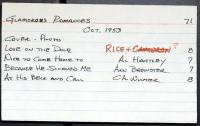 GLAMOROUS ROMANCES 71
OCT, 1953
COVER - PHOTO
LOVE ON THE DOLE RICE + CAMERON ? 8
NICE TO COME HOME TO AL HARTLEY 7
BECAUSE HE SCORNED ME ANN BREWSTER 7
AT HIS BECK AND CALL C.A. WINTER 8